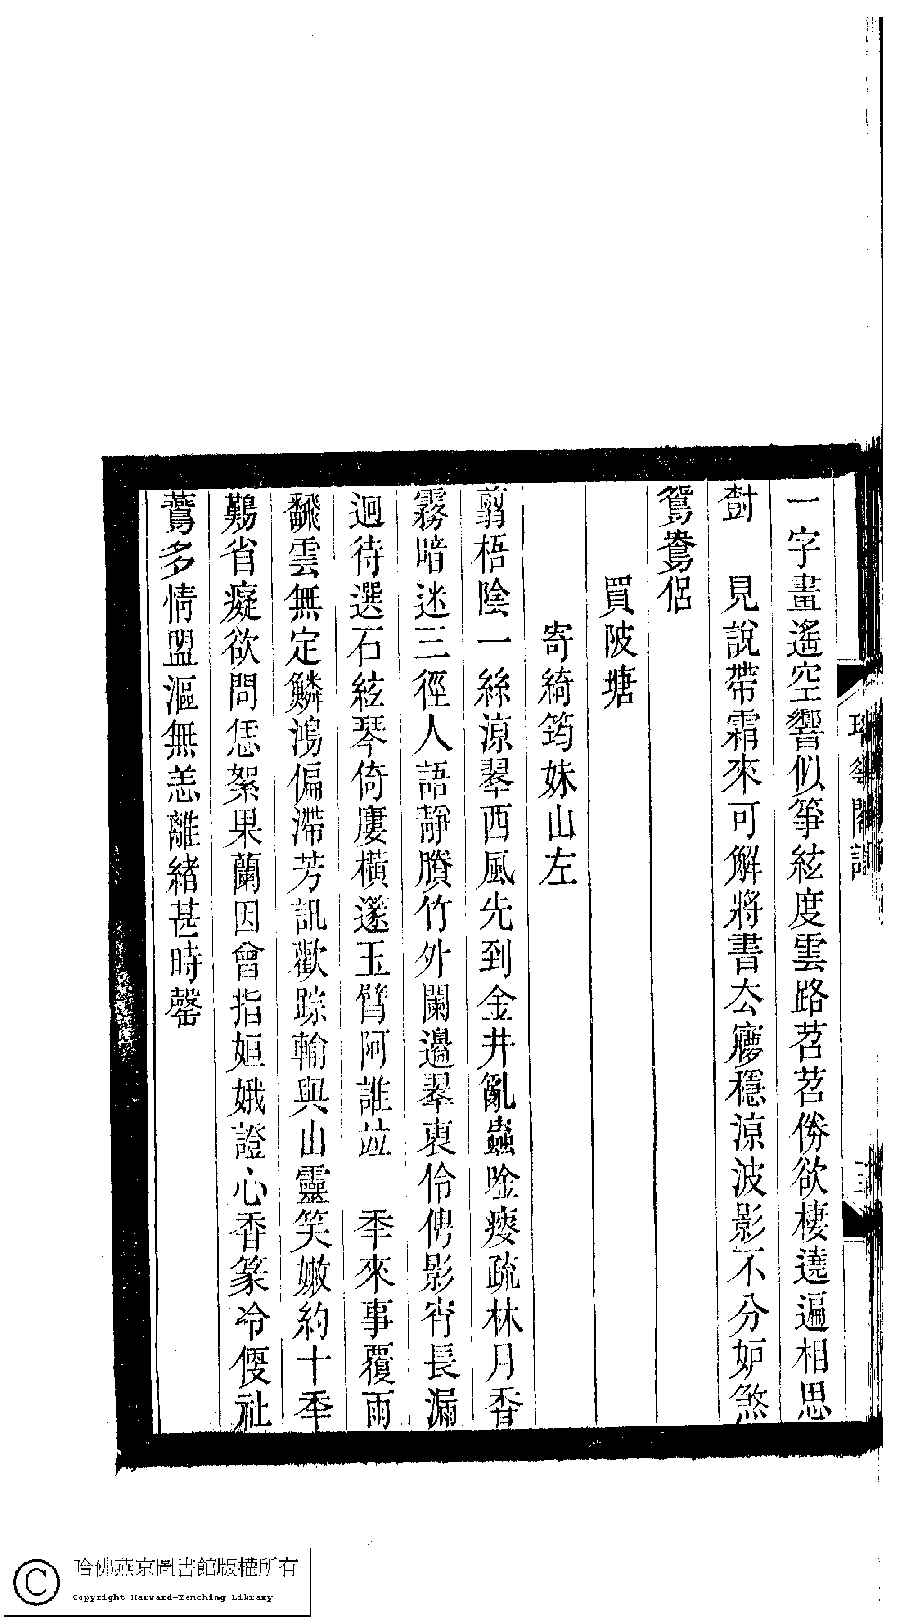 一字畫遙空響似箏絃度雲路苕苕傍欲棲遶遍相思
對　見說帶霜來可解將書去廫穩涼波影不分妒煞
鴛鴦侶
買陂塘
寄綺筠妹山左
翦梧陰一絲涼翠西風先到金井亂蟲唫瘦疏林月香
霧暗迷三徑人語靜賸竹外闌邊翠褏伶俜影宵長漏
迥待選石絃琴倚廔橫篴玉簪阿誰竝　秊來事覆雨
飜雲無定鱗鴻偏滯芳訊歡踪輸與山靈笑嫩約十秊
鷬省癡欲問恁絮果蘭因曾指姮娥證心香篆冷便祉
鷰多情盟漚無恙離緒甚時罄
三
哈佛燕京圖書館版權所有
Copyright Harvard-Yenching Library